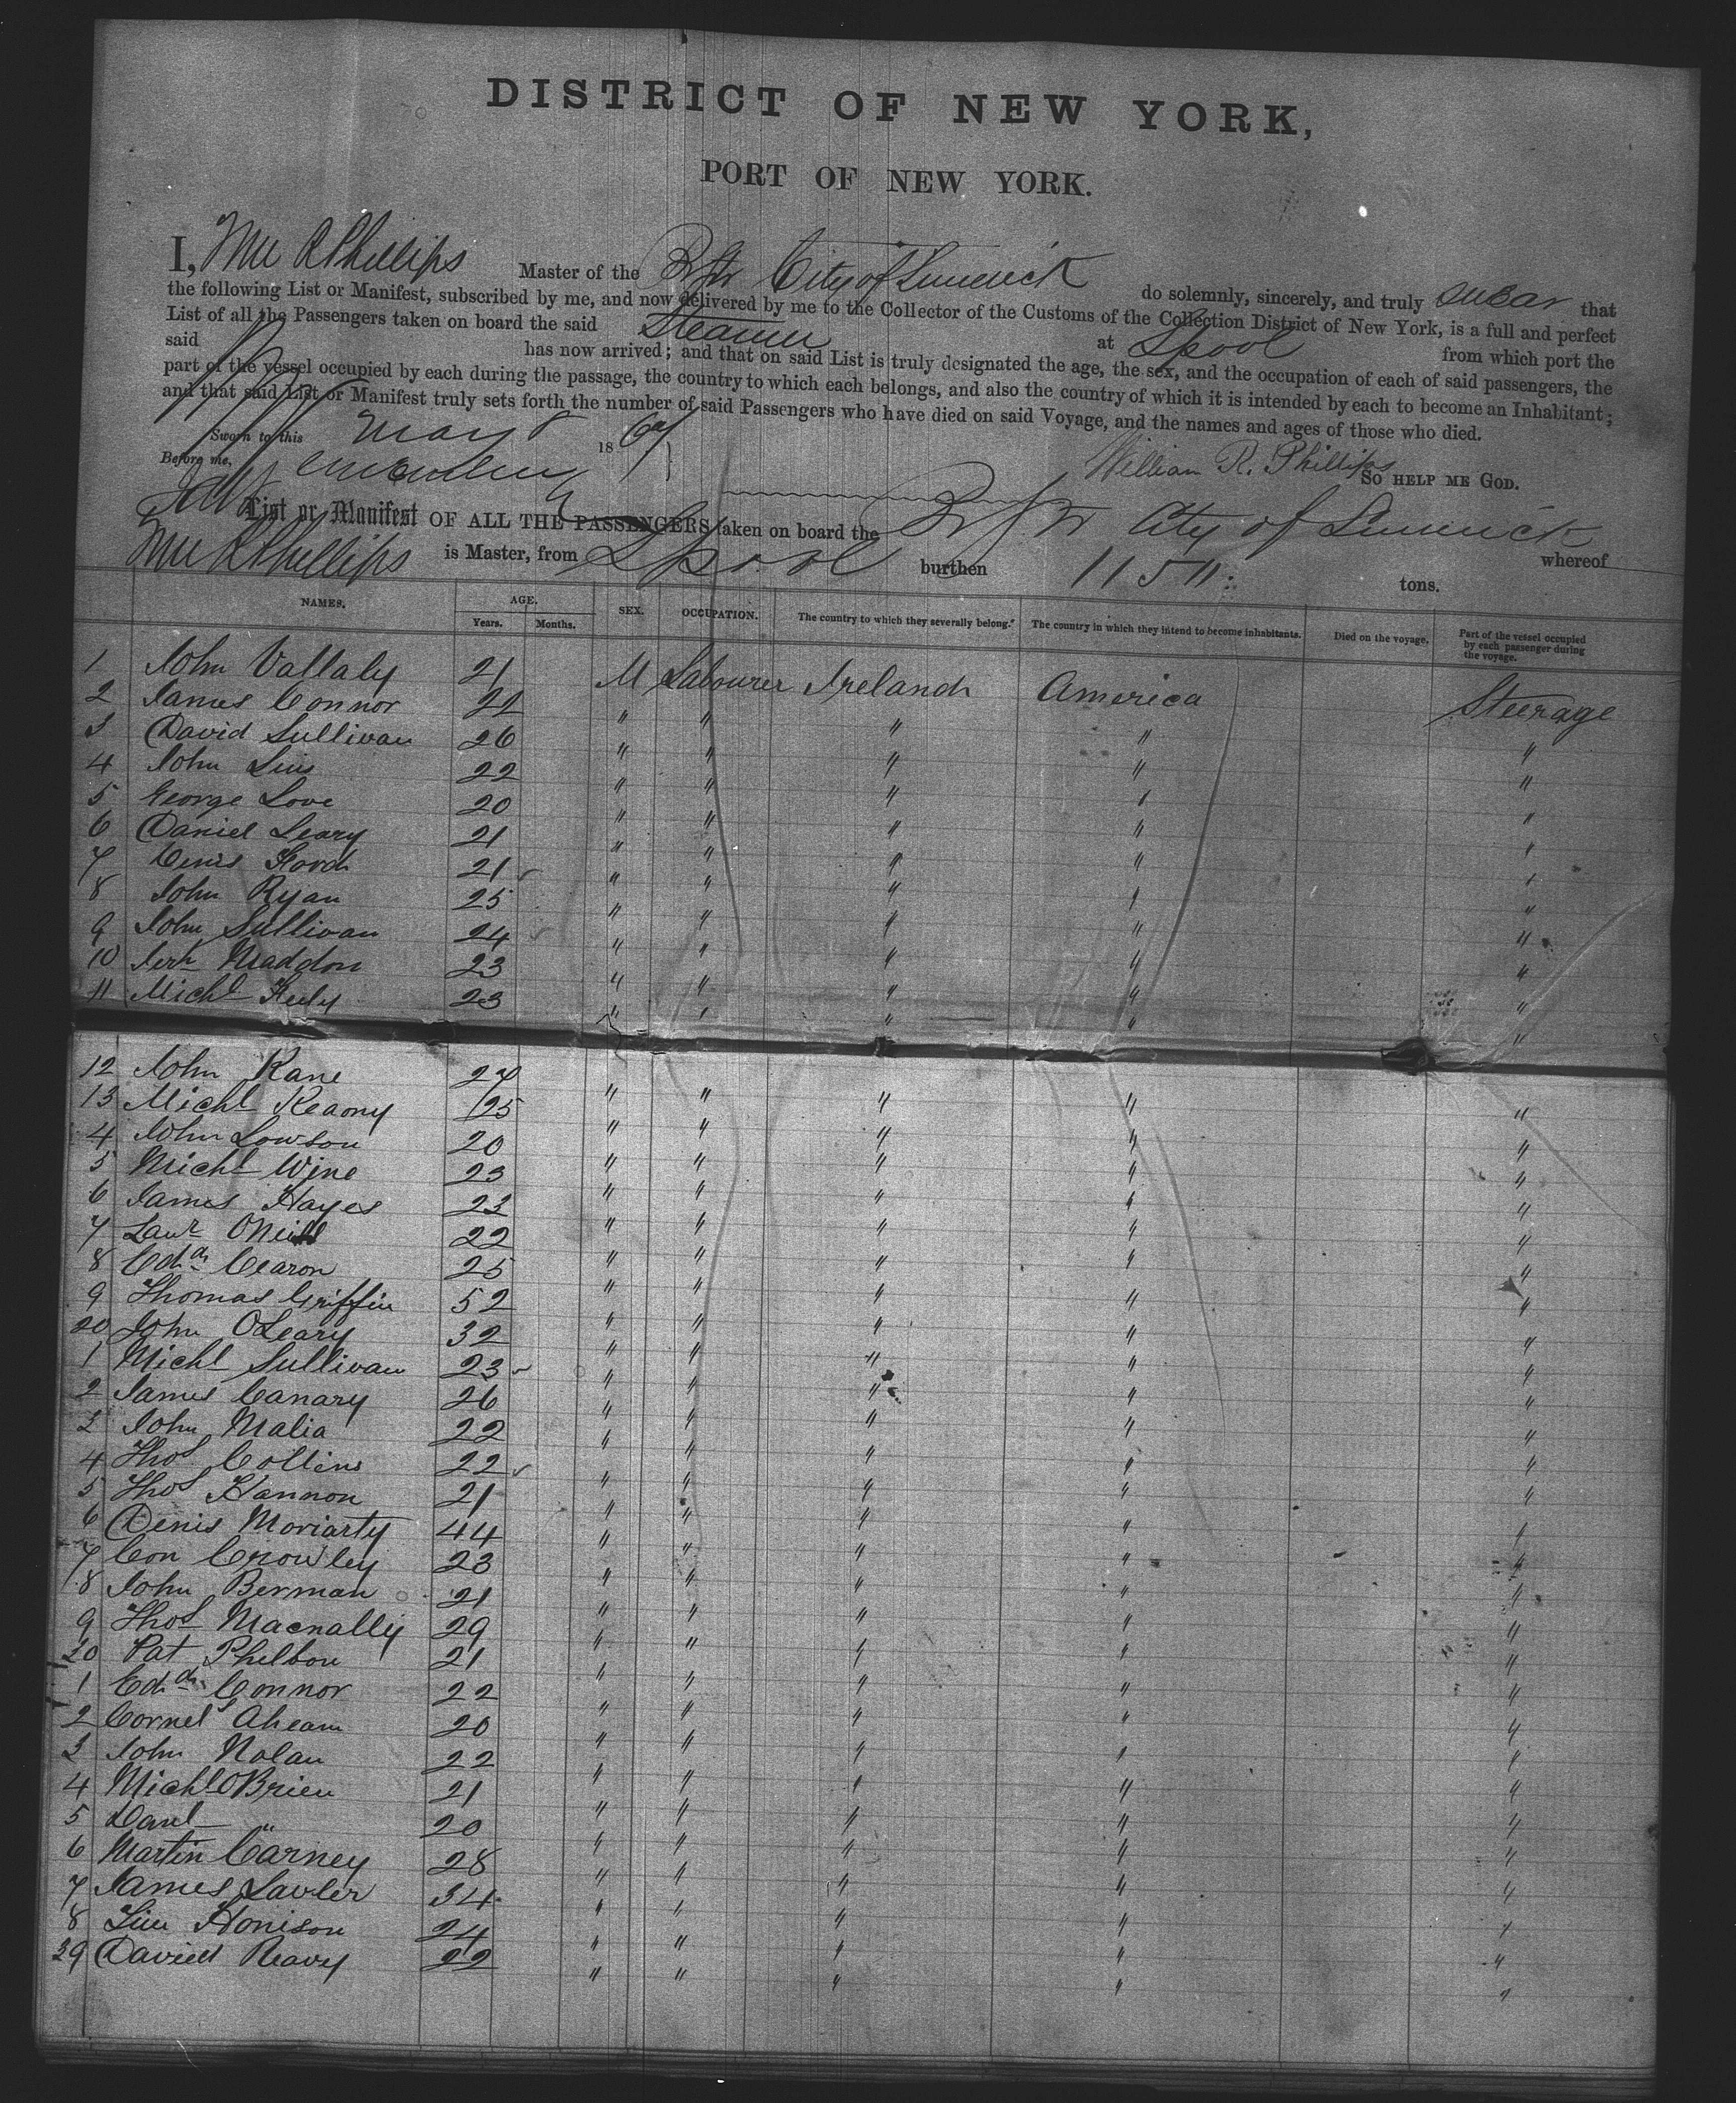 DISTRICT OF NEW YORK,
PORT OF NEW YORK.
I, Wm R Phillips Master of the Br Str City of Limerick do solemnly, sincerely, and truly swear that
the following List or Manifest, subscribed by me, and now delivered by me to the Collector of the Customs of the Collection District of New York, is a full and perfect
List of all the Passengers taken on board the said Steamer at Lpool from which port the
said has now arrived; and that on said List is truly designated the age, the sex, and the occupation of each of said passengers, the
part of the vessel occupied by each during the passage, the country to which each belongs, and also the country of which it is intended by each to become an Inhabitant;
and that said List or Manifest truly sets forth the number of said Passengers who have died on said Voyage, and the names and ages of those who died.
Sworn to this May 8 1867
Before me, William R. Phillips SO HELP ME GOD.
List or Manifest OF ALL THE PASSENGERS taken on board the Br Str City of Limerick whereof
Wm R Phillips is Master, from Lpool burthen 1151 tons.
NAMES. AGE. SEX. OCCUPATION. The country to which they severally belong. The country in which they intend to become inhabitants. Died on the voyage. Part of the vessel occupied by each passenger during the voyage.
Years. Months.
1 John Vallaly 21 M Labourer Ireland America Steerage
2 James Connor 22 " " " " "
3 David Sullivan 26 " " " " "
4 John 22 " " " " "
5 George Love 20 " " " " "
6 Daniel Leary 21 " " " " "
7 Denis 21 " " " " "
8 John Ryan 25 " " " " "
9 John Sullivan 24 " " " " "
10 Jerh Maddon 23 " " " " "
11 Michl 23 " " " " "
12 John Kane 27 " " " " "
13 Michl Keaony 25 " " " " "
4 John Lowson 20 " " " " "
5 Michl Wine 23 " " " " "
6 James Hayes 23 " " " " "
7 Lawr ONeill 22 " " " " "
8 Edwd Cearon 25 " " " " "
9 Thomas Griffin 52 " " " " "
20 John OLeary 32 " " " " "
1 Michl Sullivan 23 " " " " "
2 James Canary 26 " " " " "
3 John Malia 22 " " " " "
4 Thos Collins 22 " " " " "
5 Thos Hannon 21 " " " " "
6 Denis Moriarty 44 " " " " "
7 Con Crowley 23 " " " " "
8 John Berman 21 " " " " "
9 Thos Macnally 29 " " " " "
30 Pat Phelbon 21 " " " " "
1 Edwd Connor 22 " " " " "
2 Cornel Ahearn 20 " " " " "
3 John Nolan 22 " " " " "
4 Michl OBrien 21 " " " " "
5 Danl " 20 " " " " "
6 Martin Carney 28 " " " " "
7 James Lavler 34 " " " " "
8 Tim Honison 24 " " " " "
39 David Reavy 22 " " " " "